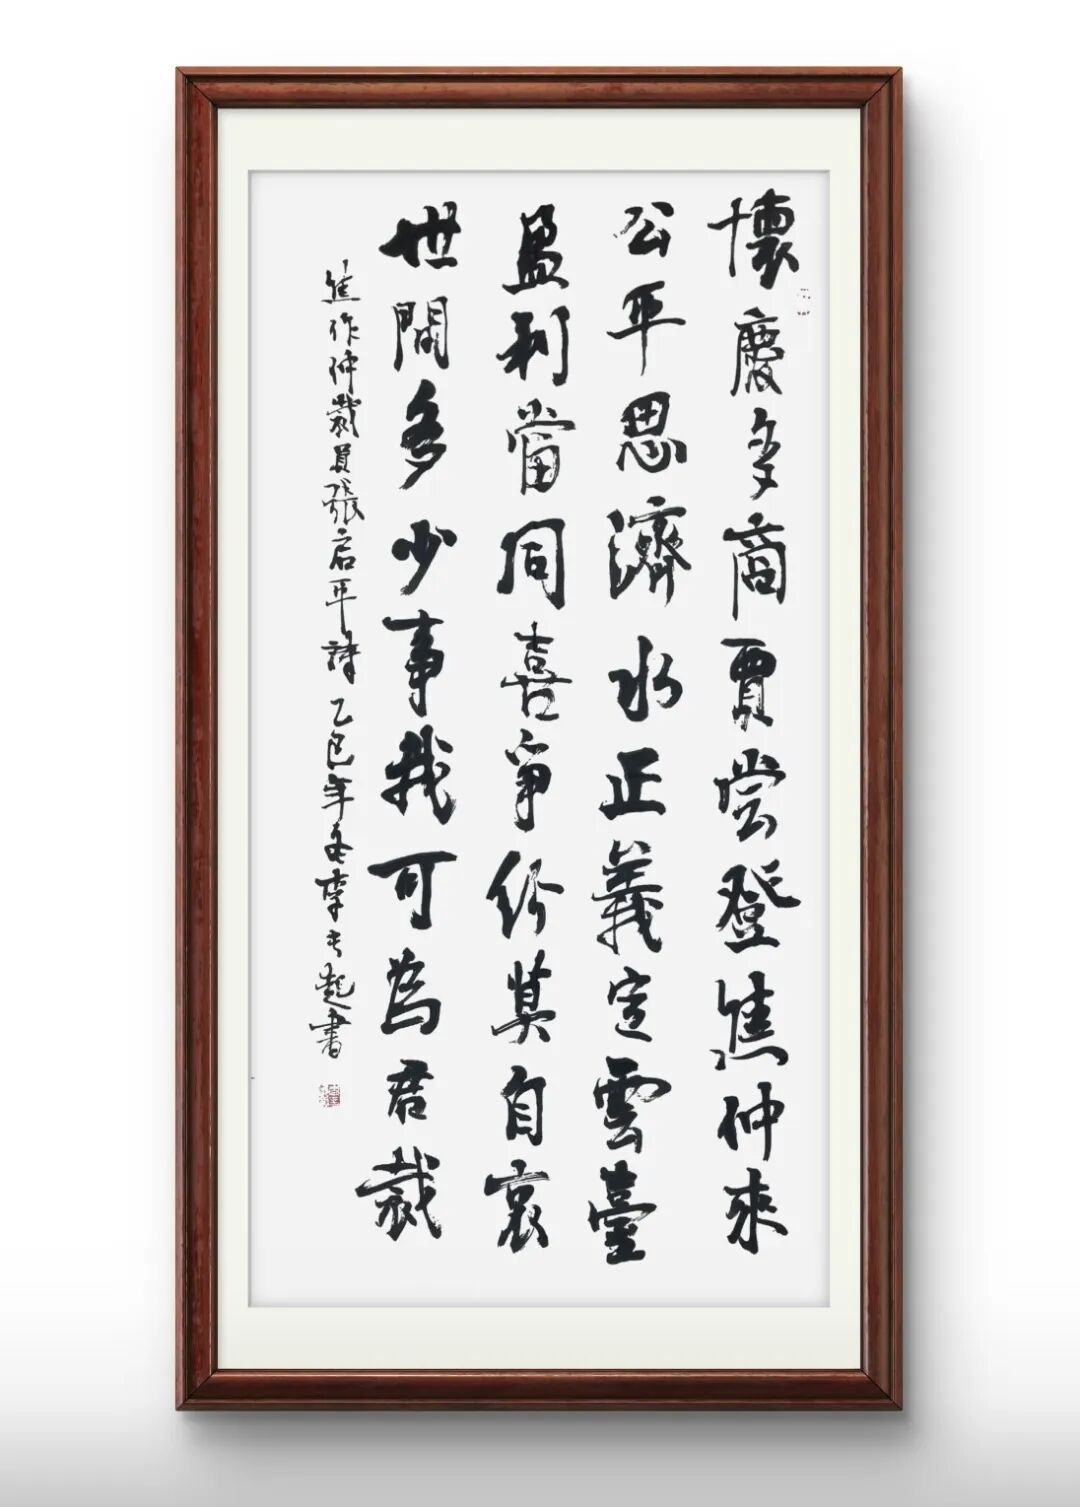 懷慶多商賈尝登焦仲來
公平思濟水正義定雲臺
盈利當同喜爭紛莫自哀
世間多少事我可為君裁
焦作仲裁員張启平詩乙巳年冬李长起書